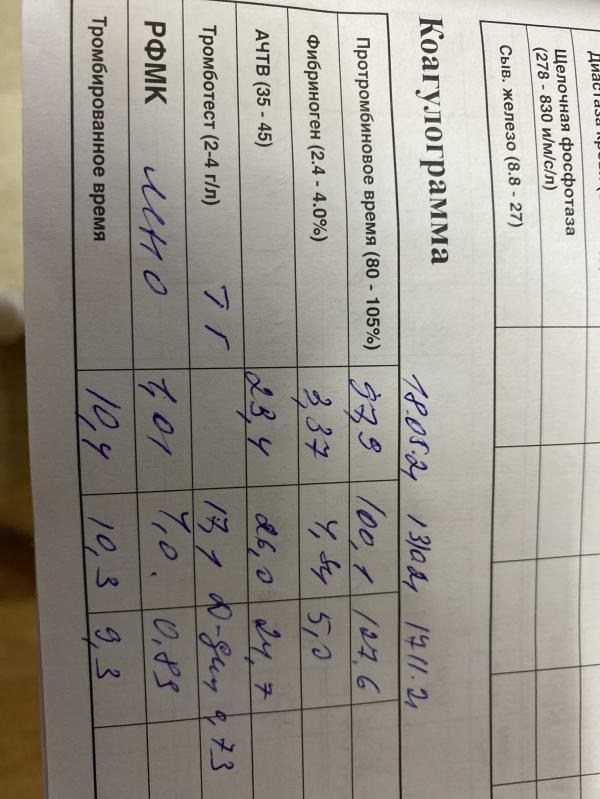 Диастаза
Щелочная фосфотаза
(278 - 830 и/м/с/л)
Сыв. железо (8.8 - 27)
Коагулограмма 18.05.21 131021 17.11.21
Протромбиновое время (80 - 105%) 97,9 100,1 127.6
Фибриноген (2.4 - 4.0%) 3,37 4,84 5,0
АЧТВ (35 - 45) 23,4 26,0 24,7
Тромботест (2-4 г/л) ТГ 17,1 D-дим 0,73
РФМК МНО 1,01 1,0. 0,89
Тромбированное время 10,4 10,3 9,3